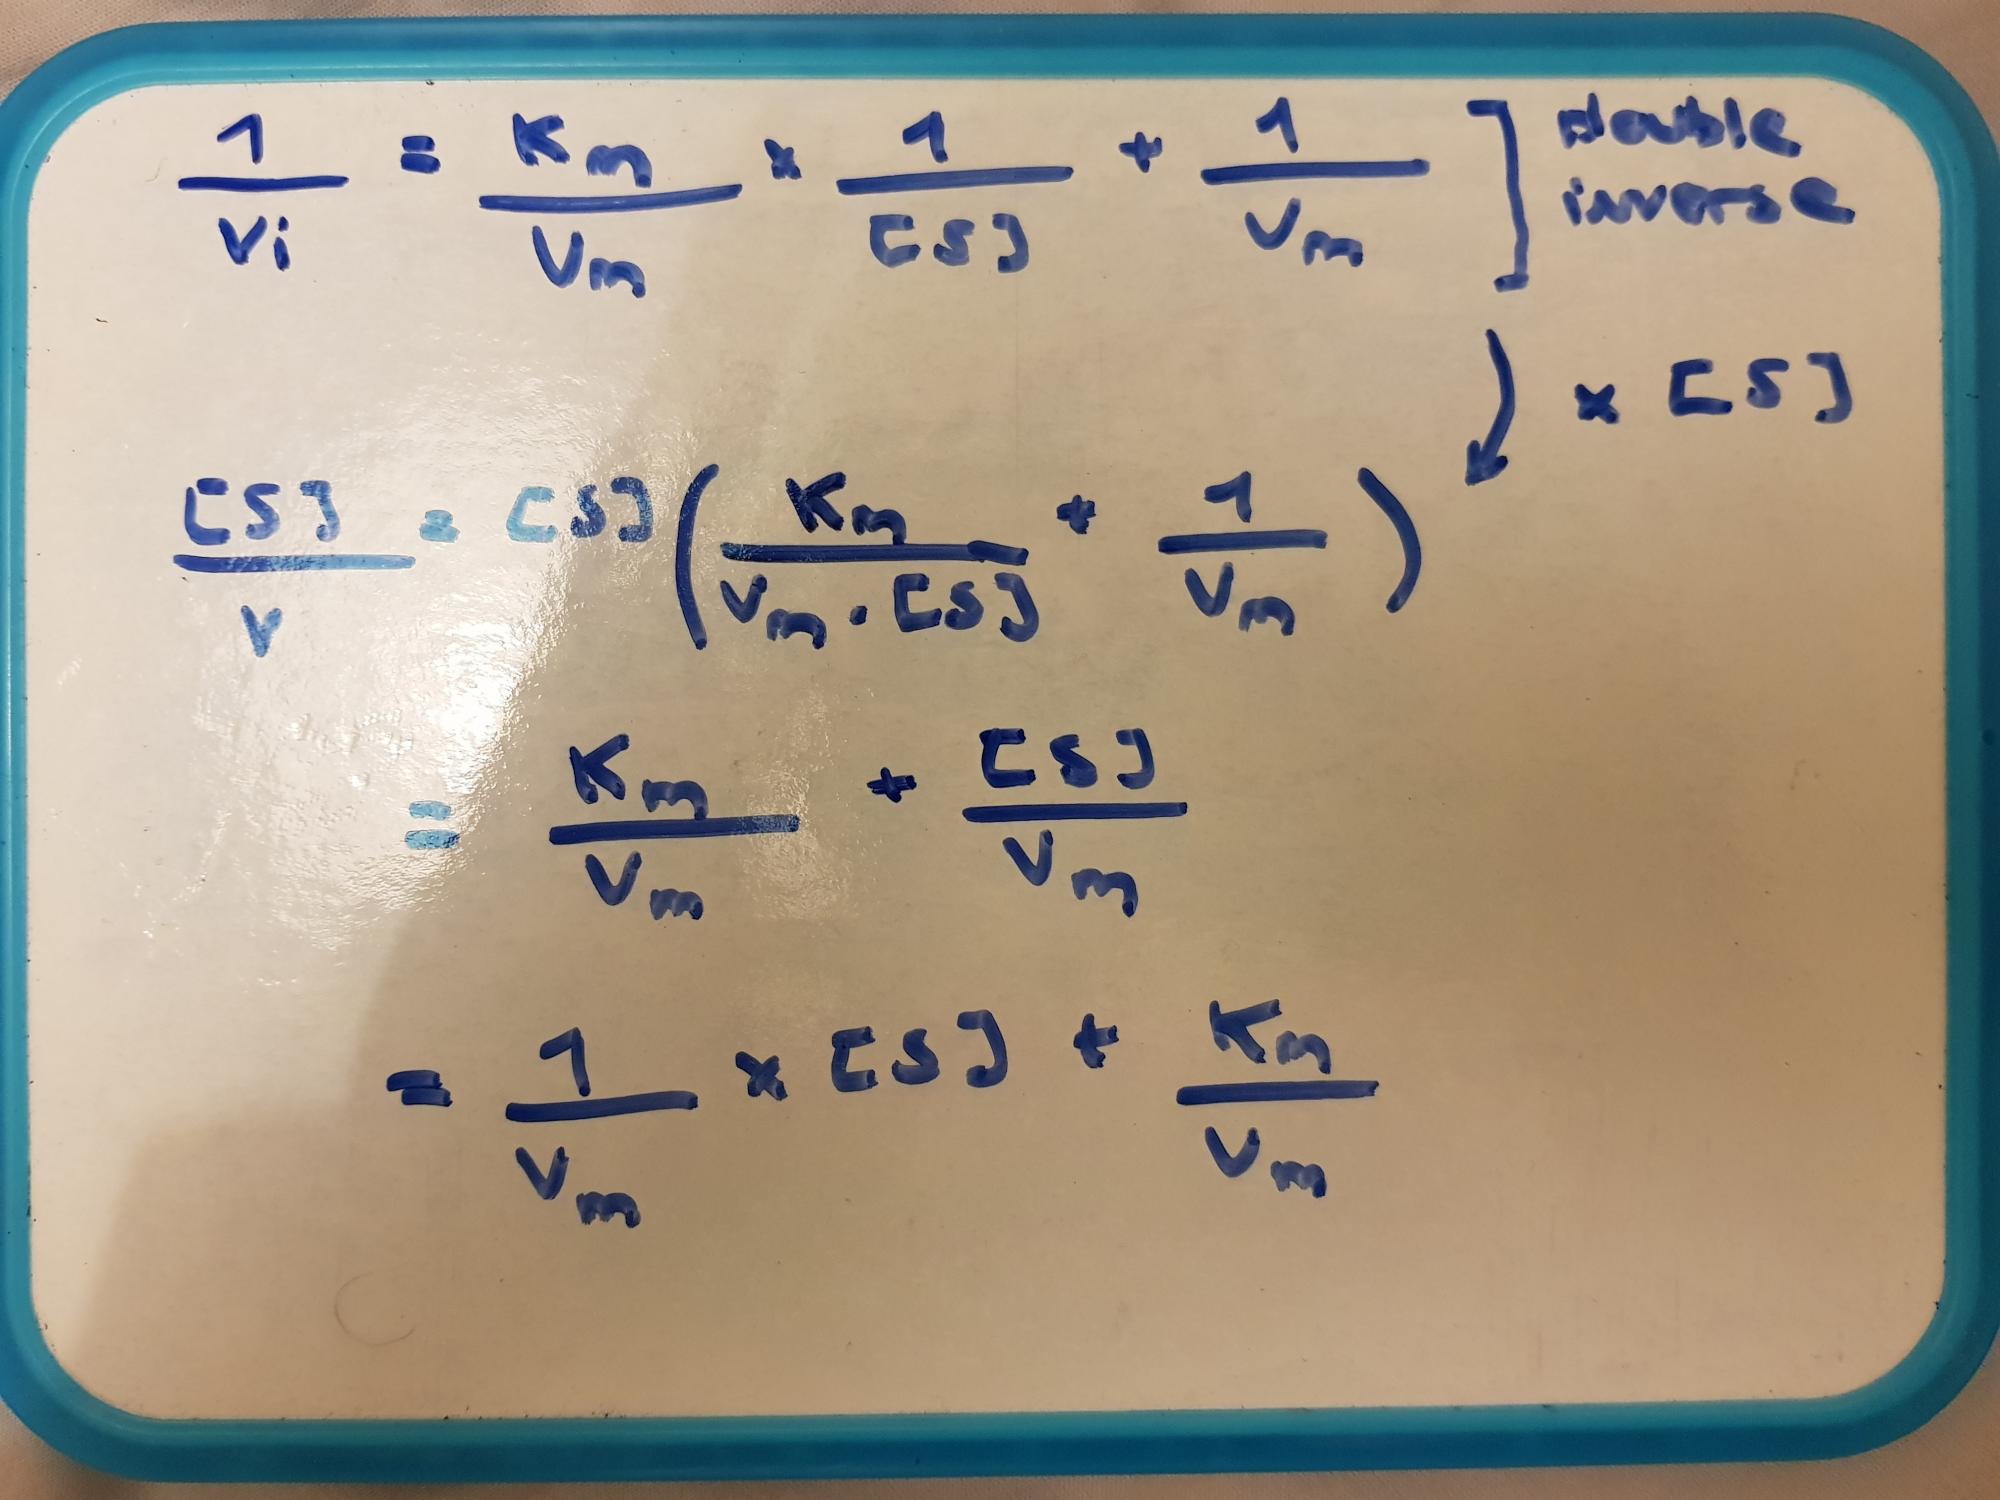 1/Vi = Km/Vm × 1/[S] + 1/Vm ] double inverse
× [S]
[S]/V = [S] (Km/Vm·[S] + 1/Vm)
= Km/Vm + [S]/Vm
= 1/Vm × [S] + Km/Vm